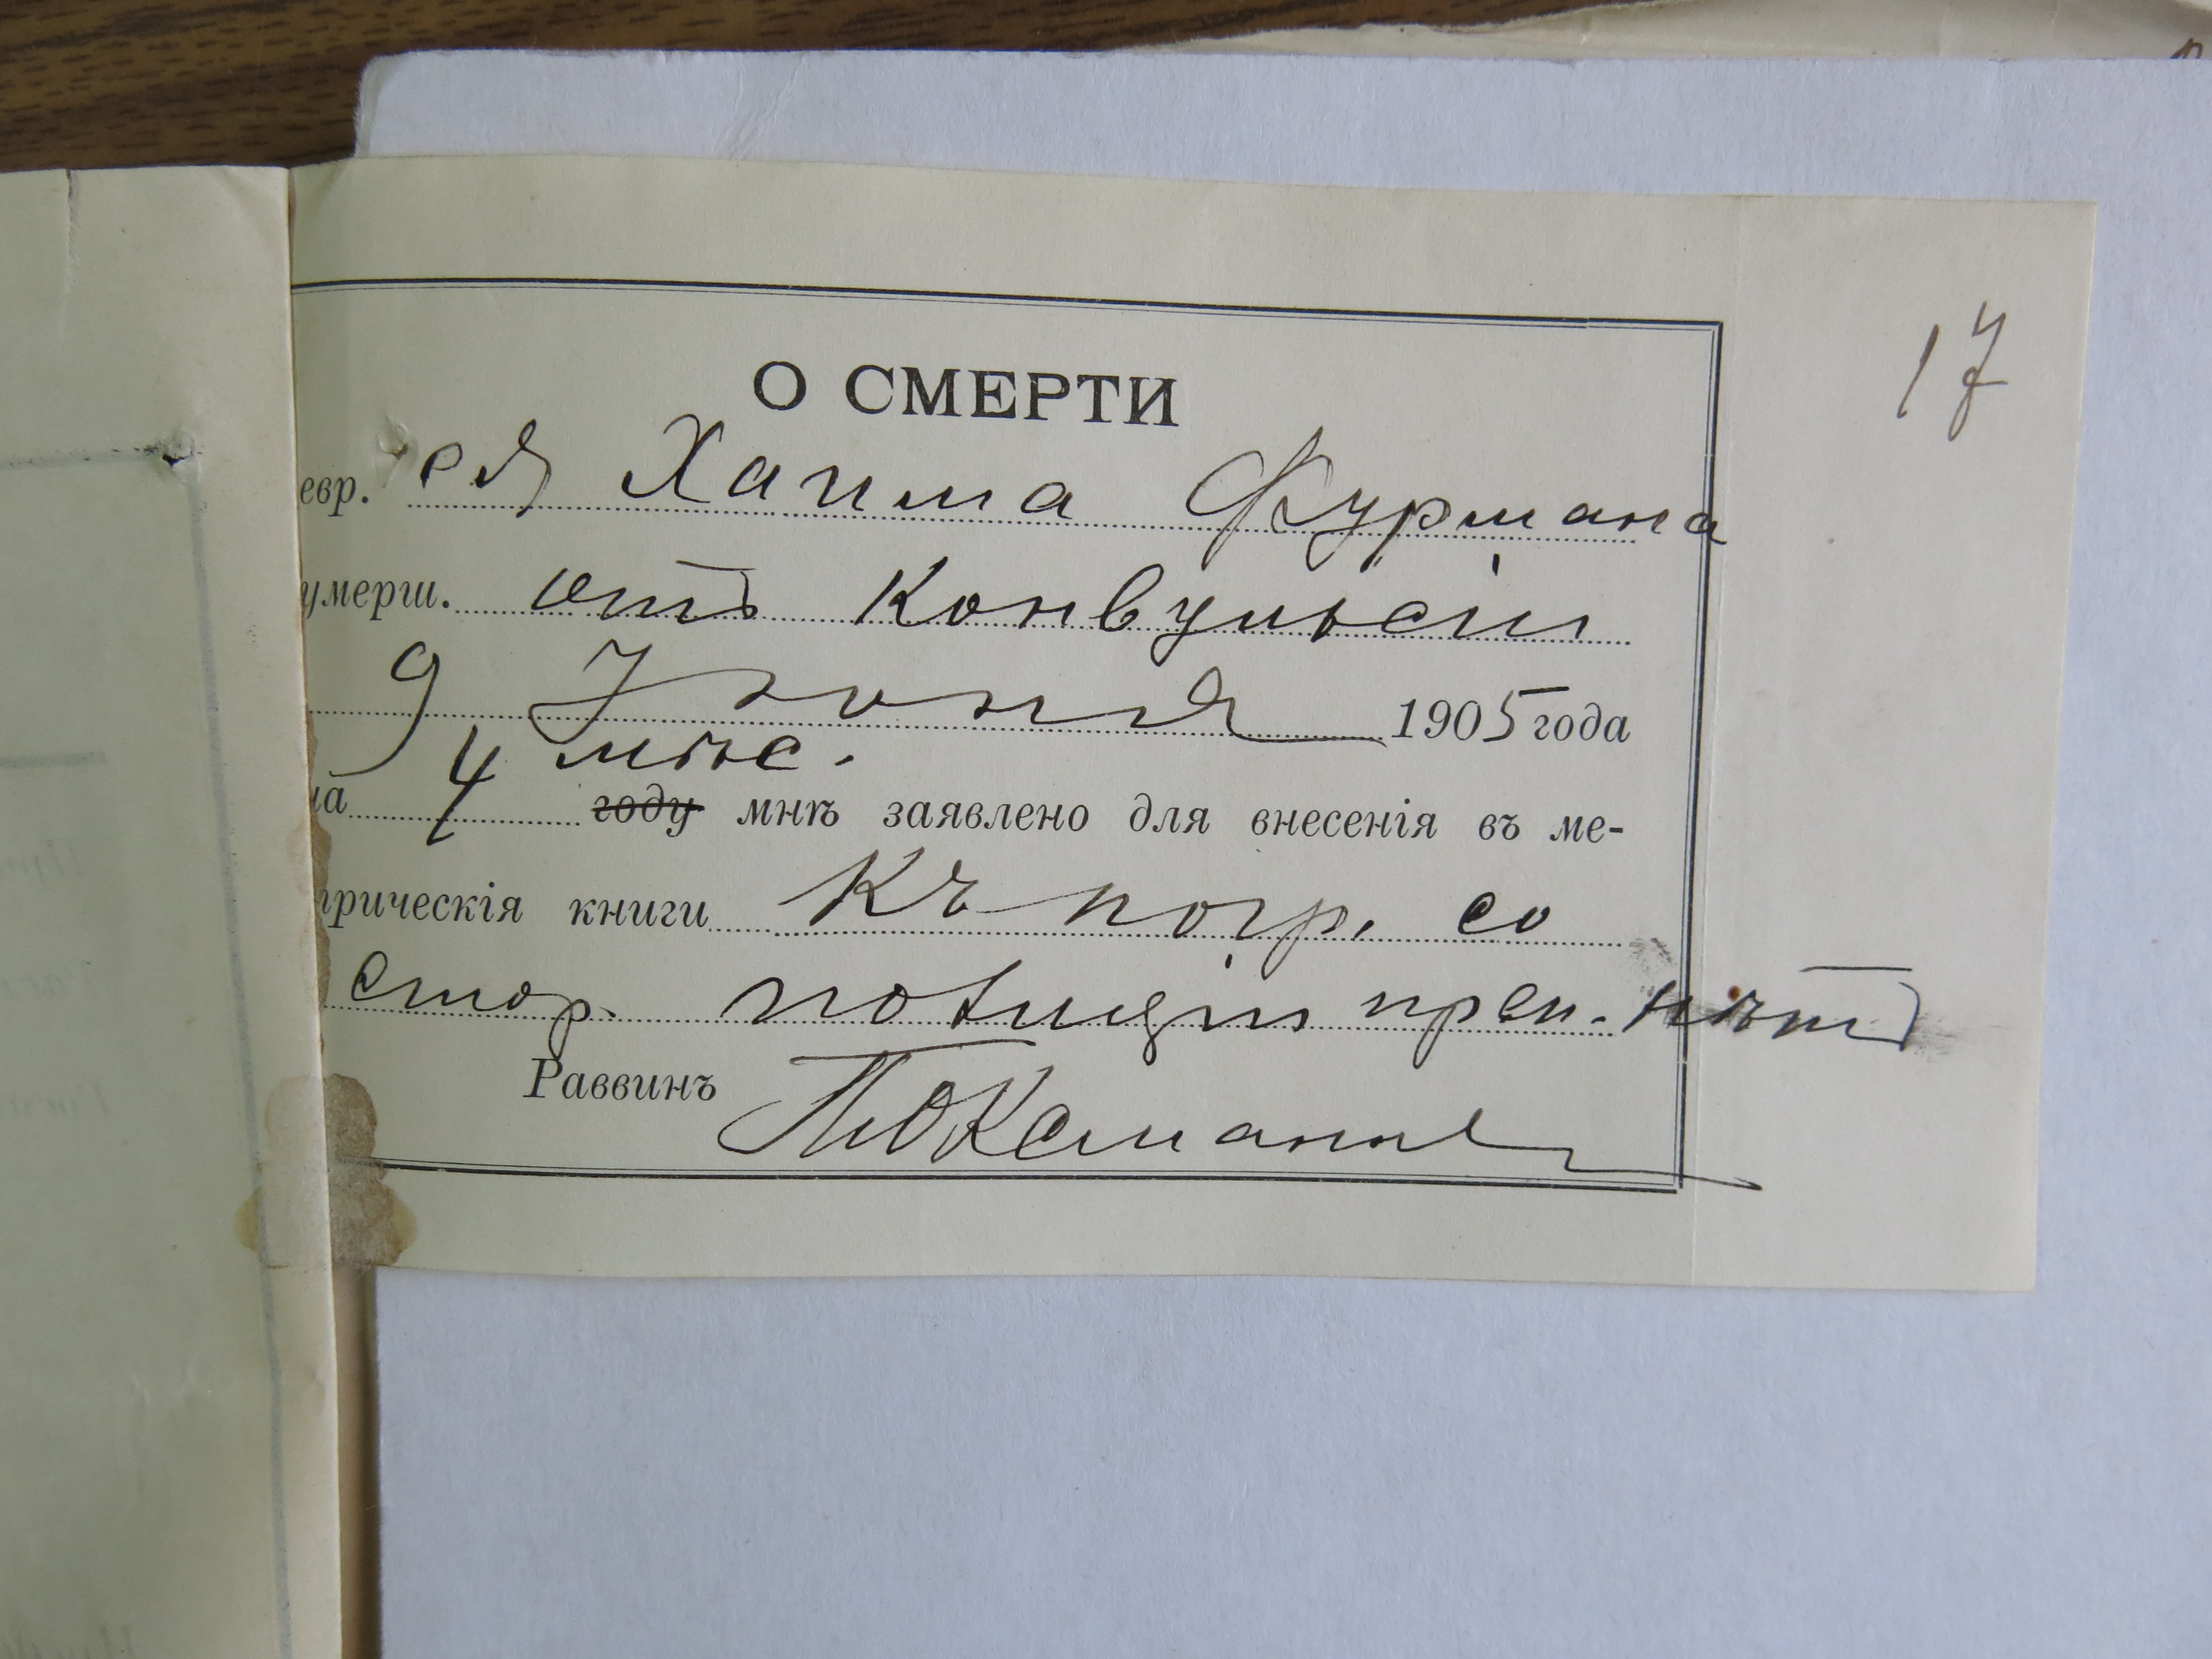 17
О СМЕРТИ
евр. ея Хаима Фурмана
умерш. отъ Конвульсіи
9 Іюня 1905 года
4 мѣс.
на году мнѣ заявлено для внесенія въ ме-
трическія книги Къ погр. со
стор. полиціи преп. нѣтъ
Раввинъ